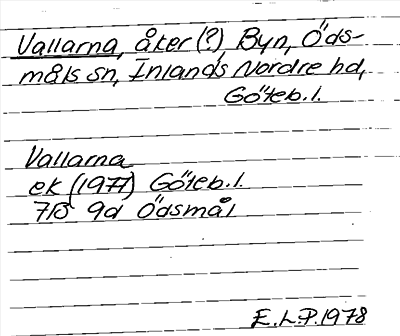 Vallarna, åker (?), Byn, Öds-
måls sn, Inlands Nordre hd,
Göteb. l.
Vallarna
ek (1977) Göteb. l.
7B 9d Ödsmål
E.L.P. 1978